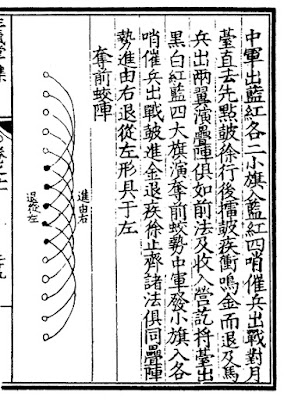 中軍出藍紅各二小旗入藍紅四哨催兵出戰對月
臺直去先點皷徐行後擂皷疾衝鳴金而退及馬
兵出兩翼演疊陣俱如前法及收入營訖將臺出
黑白紅藍四大旗演奪前蛟勢中軍發小旗入各
哨催兵出戰皷進金退疾徐止齊諸法俱同疊陣
勢進由右退從左形具于左
奪前蛟陣
進由右
退從左